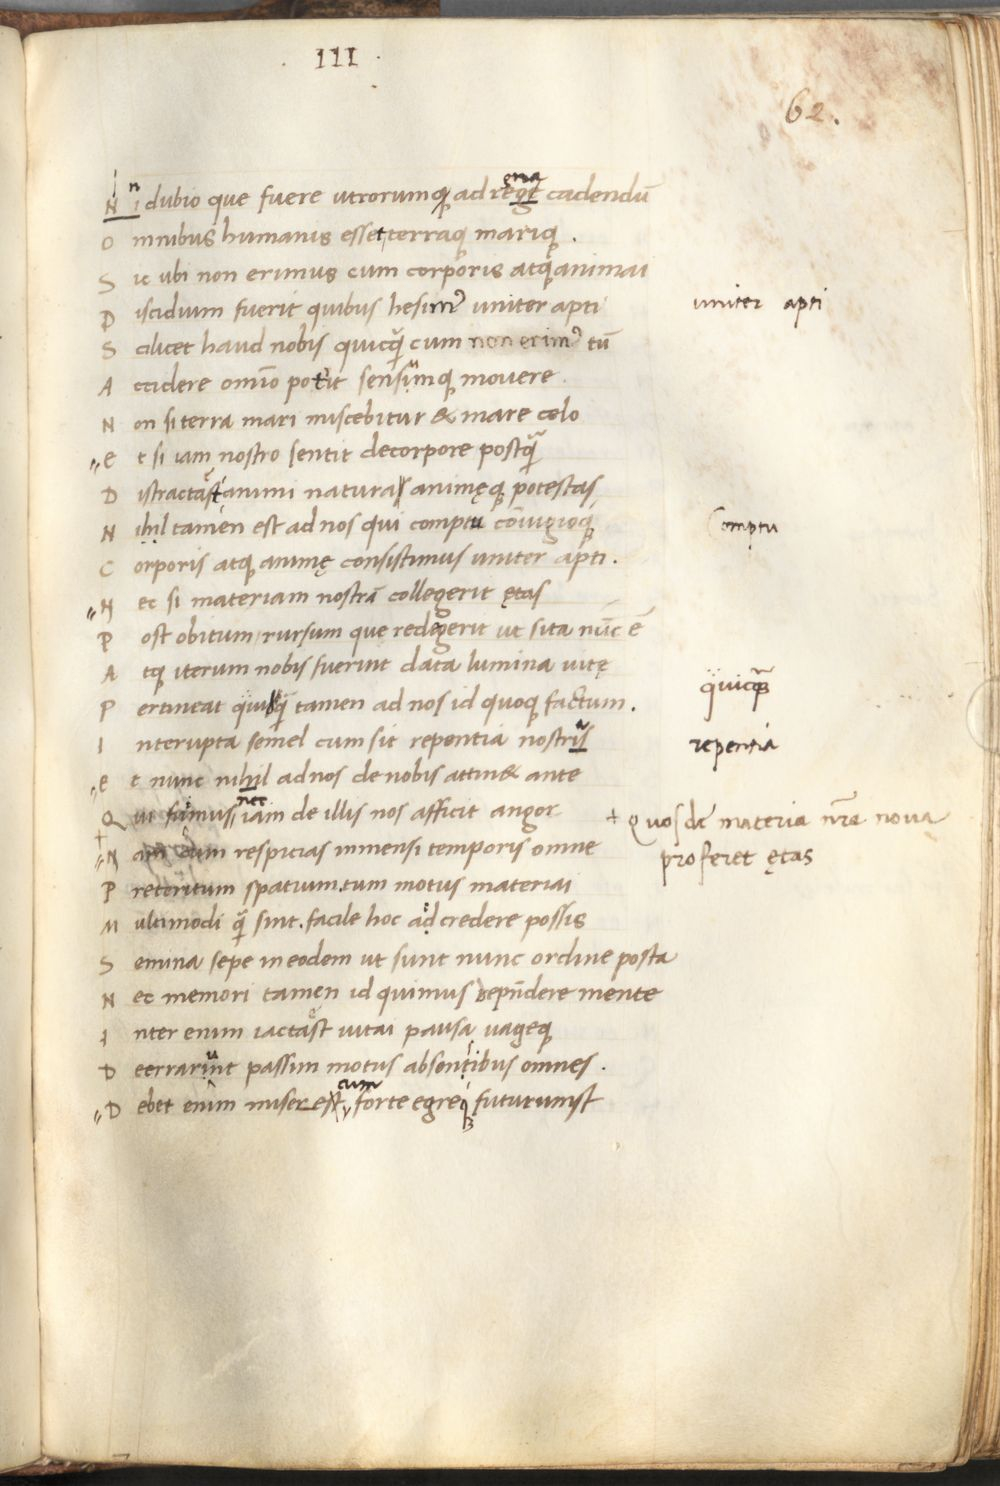 . III .
62.
N i dubio que fuere utrorumq̨ ad regt cadendū
O mnibus humanis esset terraq̨ mariq̨ .
S ic ubi non erimus cum corporis atq̨ animai
D iscidium fuerit quibus hesimꝰ uniter apti
uniter apti
S cilicet haud nobis quicq̃ cum non erimꝰ tū
A ccidere omīo pot̄it sensumq̨ movere
N on si terra mari miscebitur & mare celo
E t si iam nostro sentit de corpore postq̃
D istractast animi natura animęq̨ potestas
N ihil tamen est ad nos qui comptu cōiugioq̨
Comptu
C orporis atq̨ animę consistimus uniter apti .
N ec si materiam nostrā collegerit ętas
P ost obitum rursum que redegerit ut sita nūc ē
A tq̨ iterum nobis fuerint data lumina uitę
P ertineat quicq̃ tamen ad nos id quoq̨ factum .
quicq̃
I nterrupta semel cum sit repentia nostris
repentia
E t nunc nihil ad nos de nobis attin& ante
Q ui fuimus nec iam de illis nos afficit angor
+ Quos de materia nr̃a nova
proferet ętas
N am cum respicias inmensi temporis omne
P reteritum spatium. tum motus materiai
M ultimodi q̃ sint. facile hoc ad credere possis
S emina sepe in eodem ut sunt nunc ordine posta
N ec memori tamen id quimus repn̄dere mente
I nter enim iactast uitai pausa uageq̨
D eerrarunt passim motus absentibus omnes .
D ebet enim misere est cum forte egreq̨ futurumst